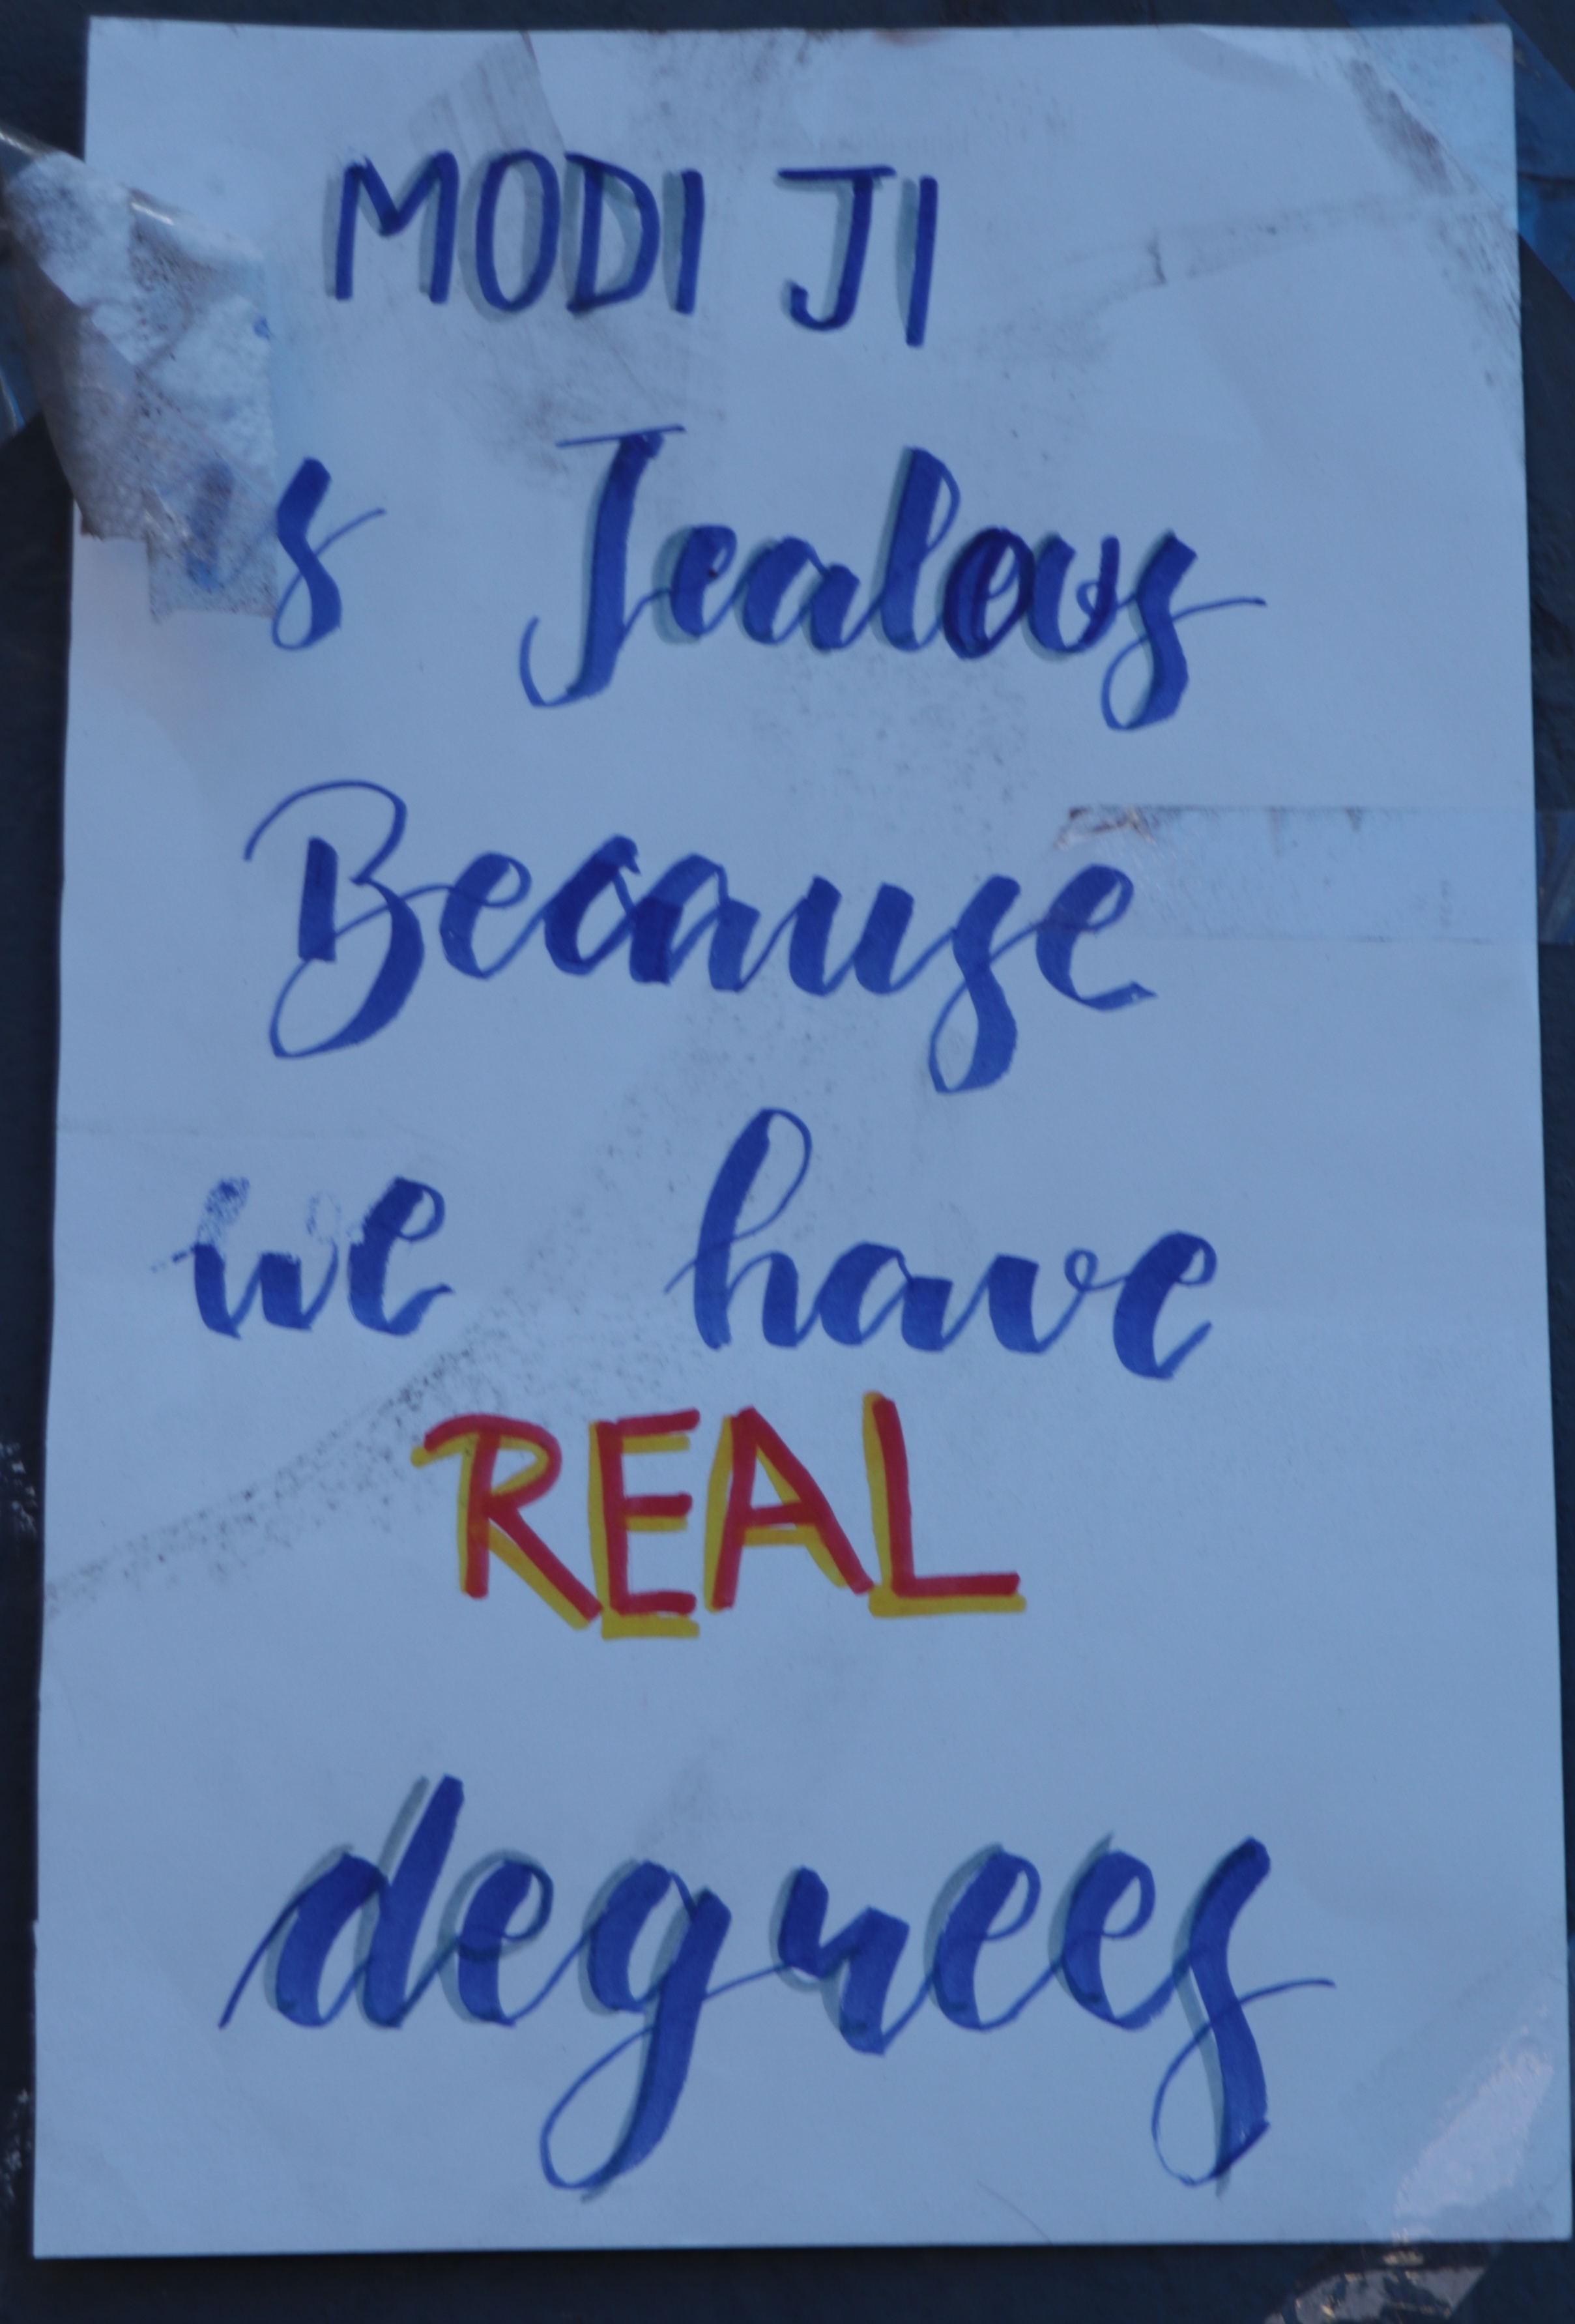 MODI JI
is Jealous
Because
we have
REAL
degrees